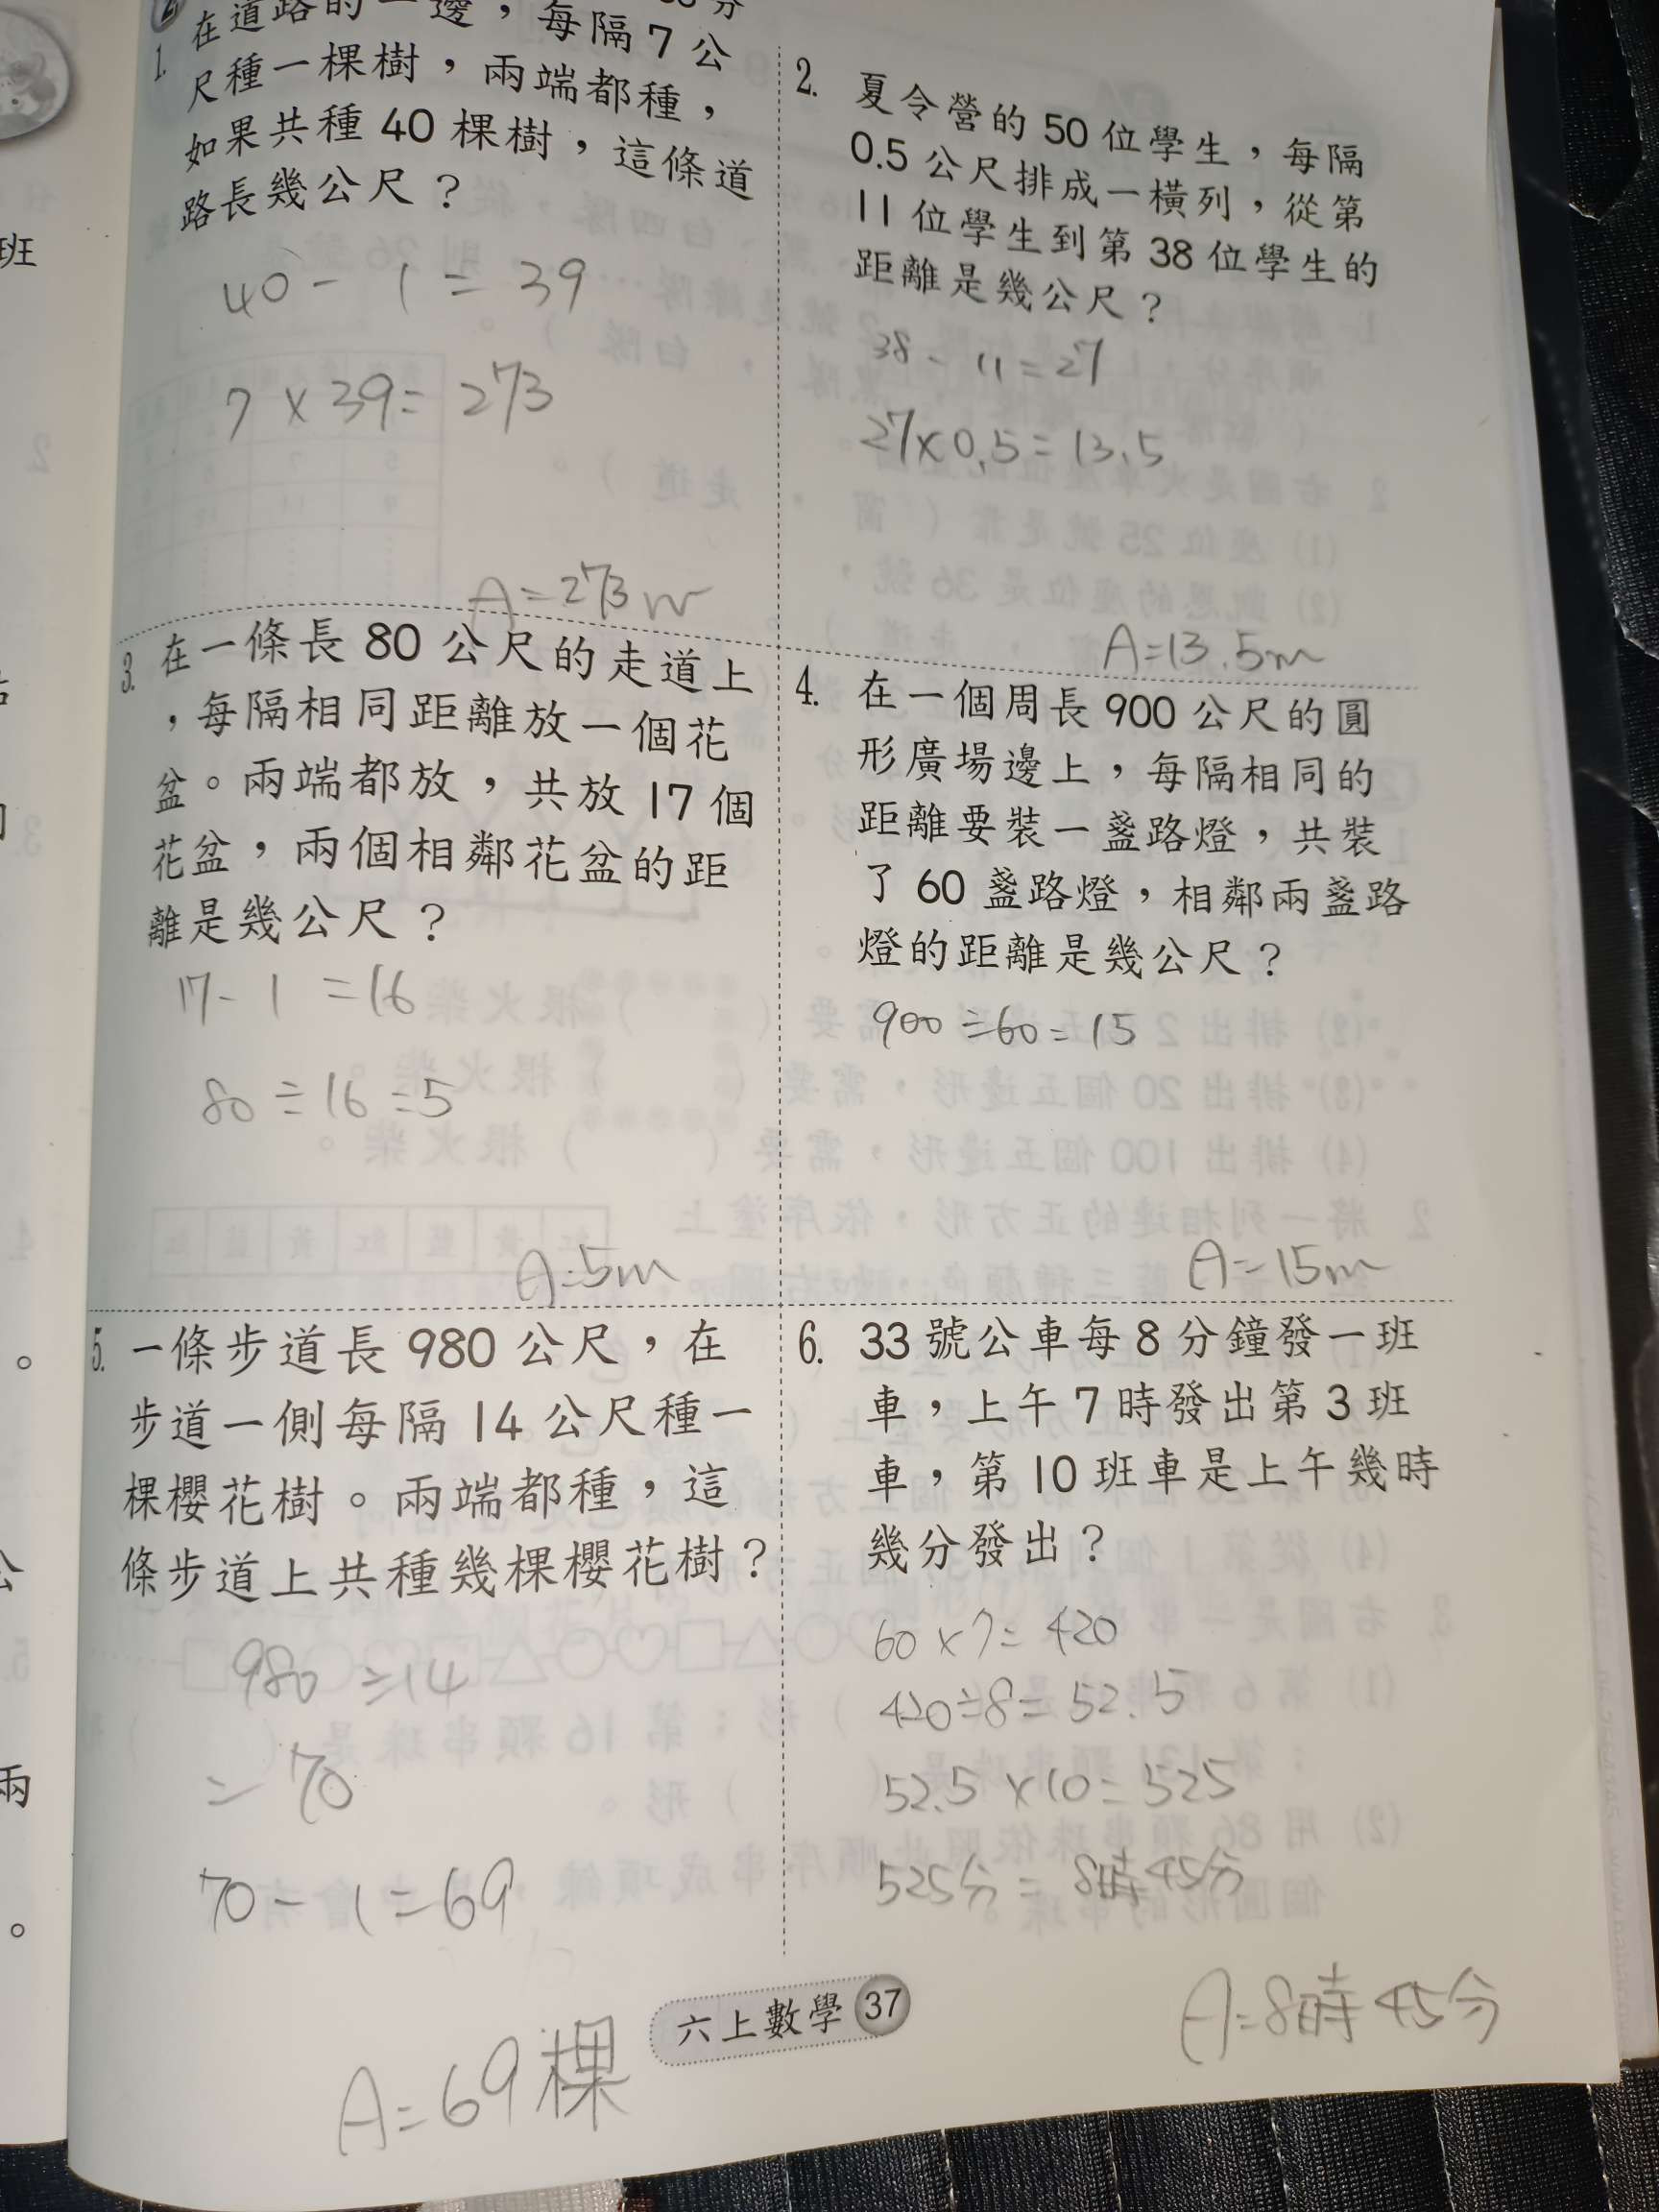 1. 在道路的一邊，每隔 7 公
尺種一棵樹，兩端都種，
如果共種 40 棵樹，這條道
路長幾公尺？
40 - 1 = 39
7 × 39 = 273
A = 273 m
2. 夏令營的 50 位學生，每隔
0.5 公尺排成一橫列，從第
11 位學生到第 38 位學生的
距離是幾公尺？
38 - 11 = 27
27 × 0.5 = 13.5
A = 13.5m
3. 在一條長 80 公尺的走道上
，每隔相同距離放一個花
盆。兩端都放，共放 17 個
花盆，兩個相鄰花盆的距
離是幾公尺？
17 - 1 = 16
80 ÷ 16 = 5
A = 5m
4. 在一個周長 900 公尺的圓
形廣場邊上，每隔相同的
距離要裝一盞路燈，共裝
了 60 盞路燈，相鄰兩盞路
燈的距離是幾公尺？
900 ÷ 60 = 15
A = 15m
5. 一條步道長 980 公尺，在
步道一側每隔 14 公尺種一
棵櫻花樹。兩端都種，這
條步道上共種幾棵櫻花樹？
980 ÷ 14
= 70
70 - 1 = 69
A = 69 棵
6. 33 號公車每 8 分鐘發一班
車，上午 7 時發出第 3 班
車，第 10 班車是上午幾時
幾分發出？
60 × 7 = 420
420 ÷ 8 = 52.5
52.5 × 10 = 525
525分 = 8時45分
A = 8時45分
六上數學 37